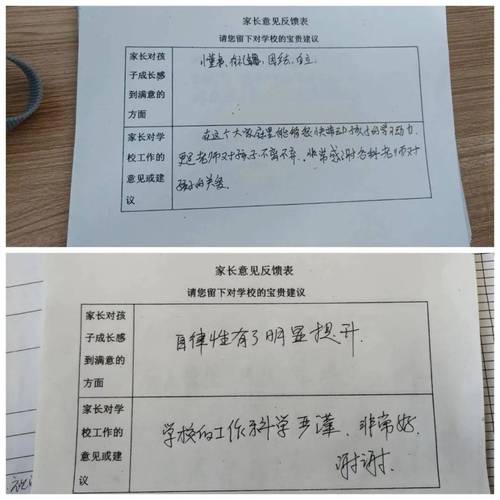 家长意见反馈表
请您留下对学校的宝贵建议
家长对孩
子成长感
到满意的
方面
懂事、有礼貌、团结、自立。
家长对学
校工作的
意见或建
议
在这个大家庭里能够很快带动孩子的学习动力.
更是老师对孩子不离不弃、非常感谢各科老师对
孩子的关爱。
家长意见反馈表
请您留下对学校的宝贵建议
家长对孩
子成长感
到满意的
方面
自律性有了明显提升.
家长对学
校工作的
意见或建
议
学校的工作科学严谨、非常好.
谢谢.